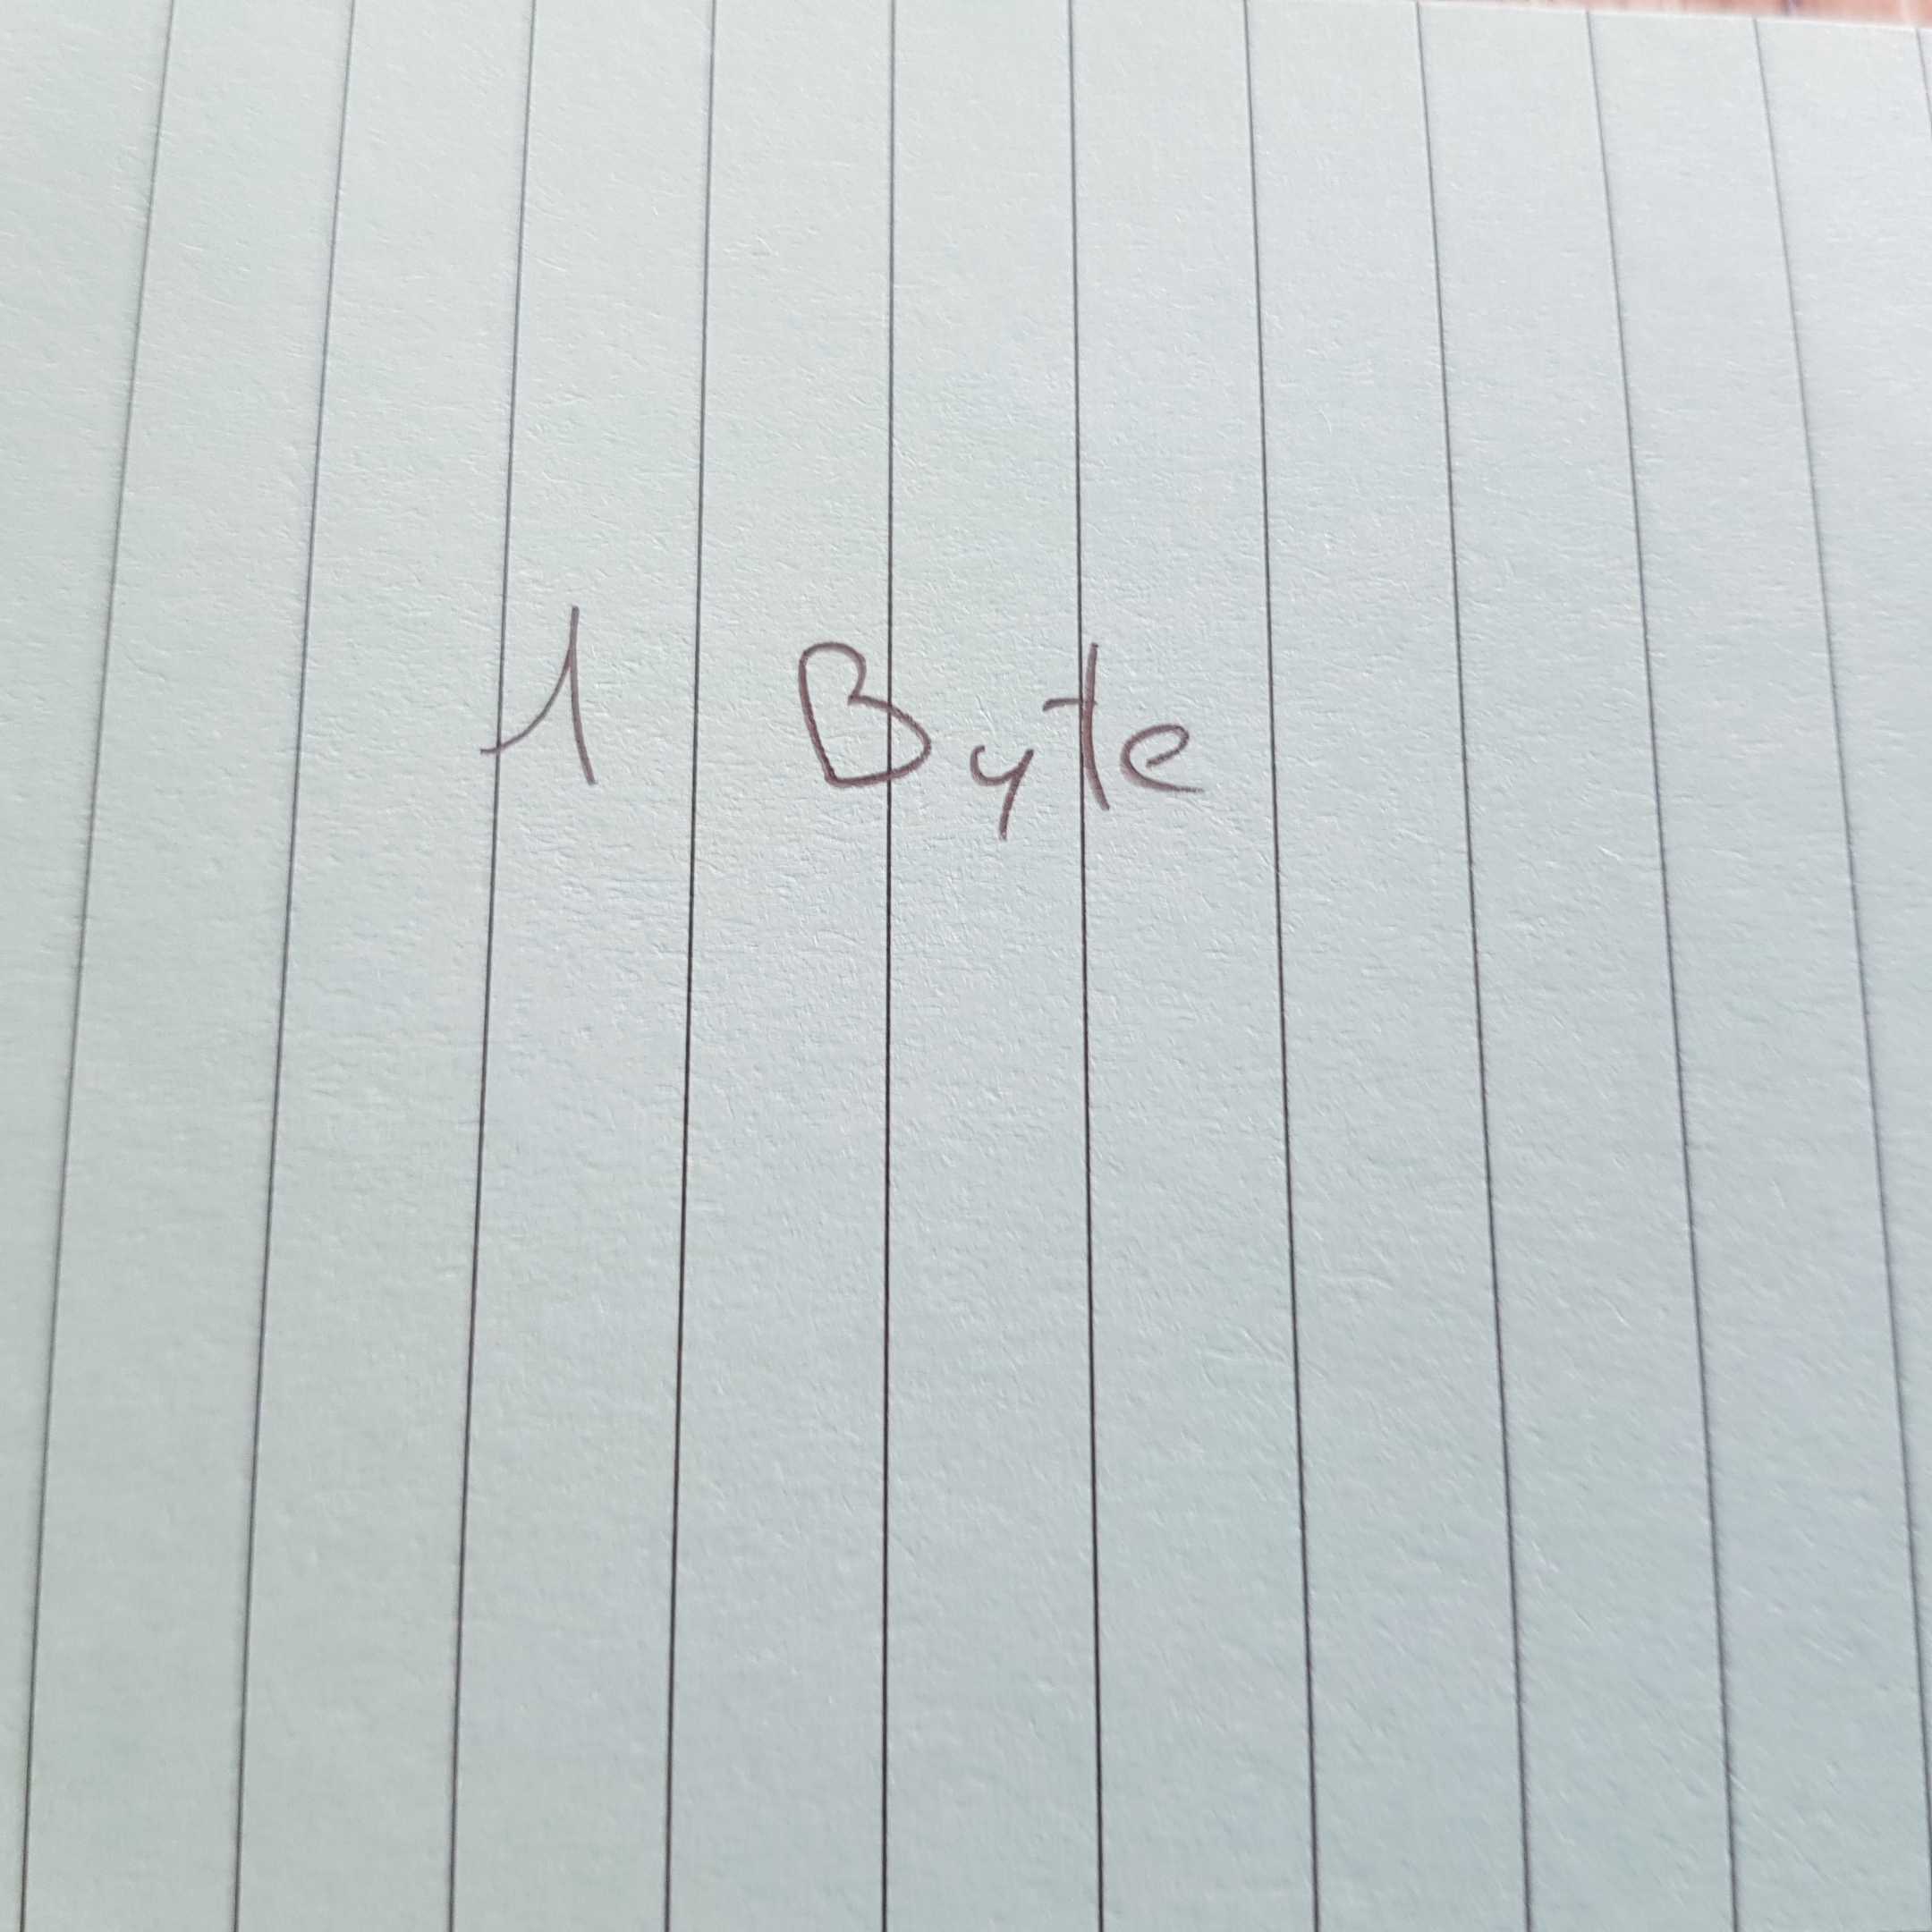 1 Byte